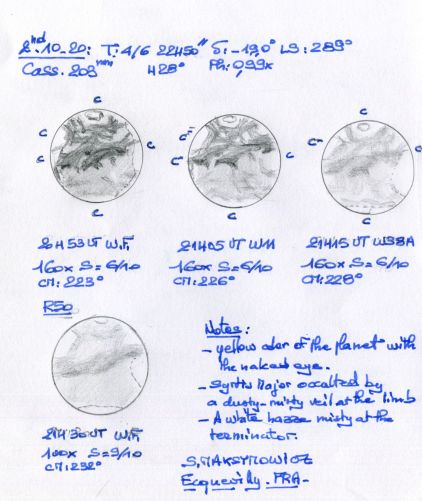 2nd.10_20: T: 4/6 22"50 δ: -19,0° LS: 289°
Cass. 203mm H28° Ph: 0,99x
C
C
C
C
C
C
C
C
C
C
C
20H53 UT W.F.
160x S=6/10
CM: 223°
21H05 UT W11
160x S=6/10
CM: 226°
21H15 UT W38A
160x S=6/10
CM: 228°
R50
21H30 UT W.F.
160x S=5/10
CM: 232°
Notes:
- yellow color of the planet with
the naked eye.
- Syrtis Major occulted by
a dusty-misty veil at the limb
- A white hazze misty at the
terminator.
S.MAKSYMOWICZ
Ecquevilly. FRA-